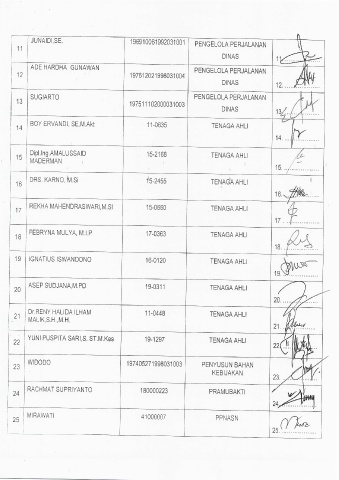 11 JUNAIDI.SE. 196910081992031001 PENGELOLA PERJALANAN DINAS 11.
12 ADE HARDHA GUNAWAN 197512021998031004 PENGELOLA PERJALANAN DINAS 12.
13 SUGIARTO 197511102000031003 PENGELOLA PERJALANAN DINAS 13.
14 BOY ERVANDI, SE.M.Akt 11-0635 TENAGA AHLI
15 Dipl.Ing AMALUSSAID MADERMAN 15-2168 TENAGA AHLI 15.
16 DRS. KARNO, M.Si 15-2455 TENAGA AHLI 16.
17 REKHA MAHENDRASWARI,M.SI 15-0660 TENAGA AHLI 17.
18 FEBRYNA MULYA, M.I.P 17-0363 TENAGA AHLI 18.
19 IGNATIUS ISWANDONO 16-0120 TENAGA AHLI 19.
20 ASEP SUDJANA,M.PD 19-0311 TENAGA AHLI 20.
21 Dr.RENY HALIDA ILHAM MALIK,S.H.,M.H. 11-0448 TENAGA AHLI 21.
22 YUNI PUSPITA SARI,S. ST.M.Kes 19-1297 TENAGA AHLI 22.
23 WIDODO 197405271998031003 PENYUSUN BAHAN KEBIJAKAN 23.
24 RACHMAT SUPRIYANTO 180000223 PRAMUBAKTI 24.
25 MIRAWATI 41000007 PPNASN 25.